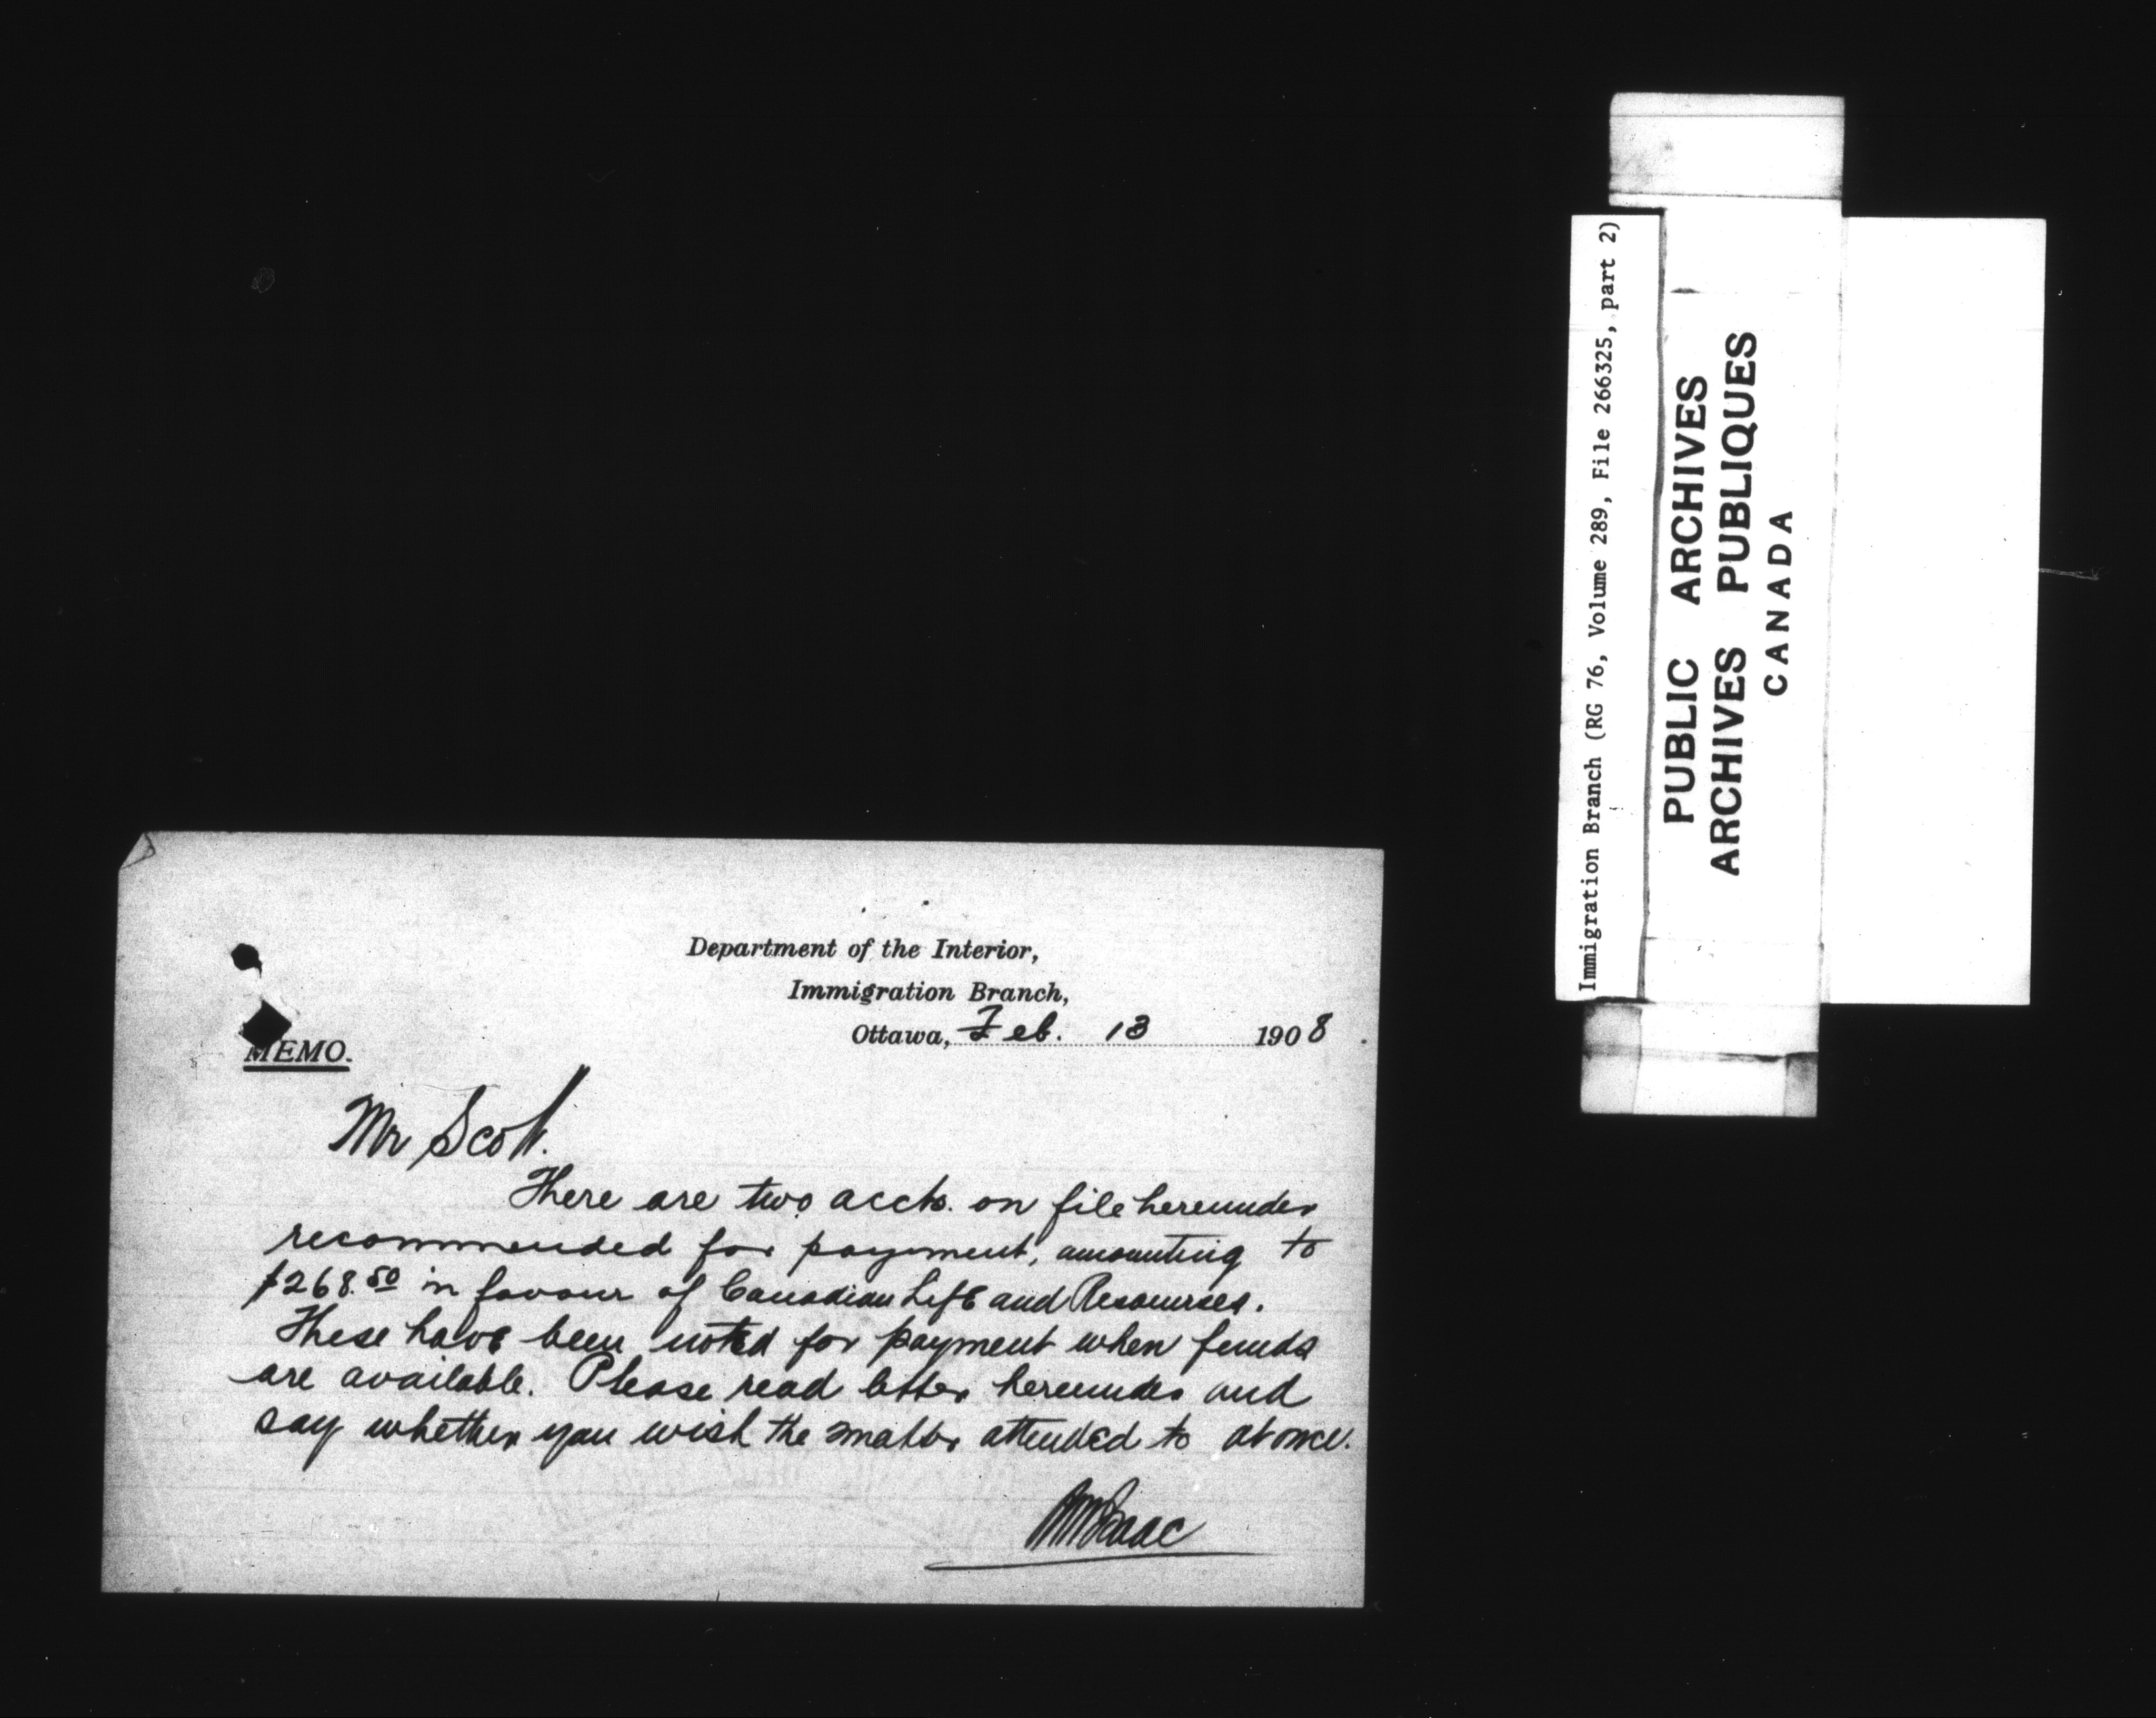 Department of the Interior,
Immigration Branch,
Ottawa, Feb. 13 1908.
MEMO.
Mr Scott.
There are two accts. on file hereunder
recommended for payment, amounting to
$268.50 in favour of Canadian Life and Resources.
These have been noted for payment when funds
are available. Please read letter hereunder and
say whether you wish the matter attended to at once.
Immigration Branch (RG 76, Volume 289, File 266325, part 2)
PUBLIC ARCHIVES
ARCHIVES PUBLIQUES
CANADA